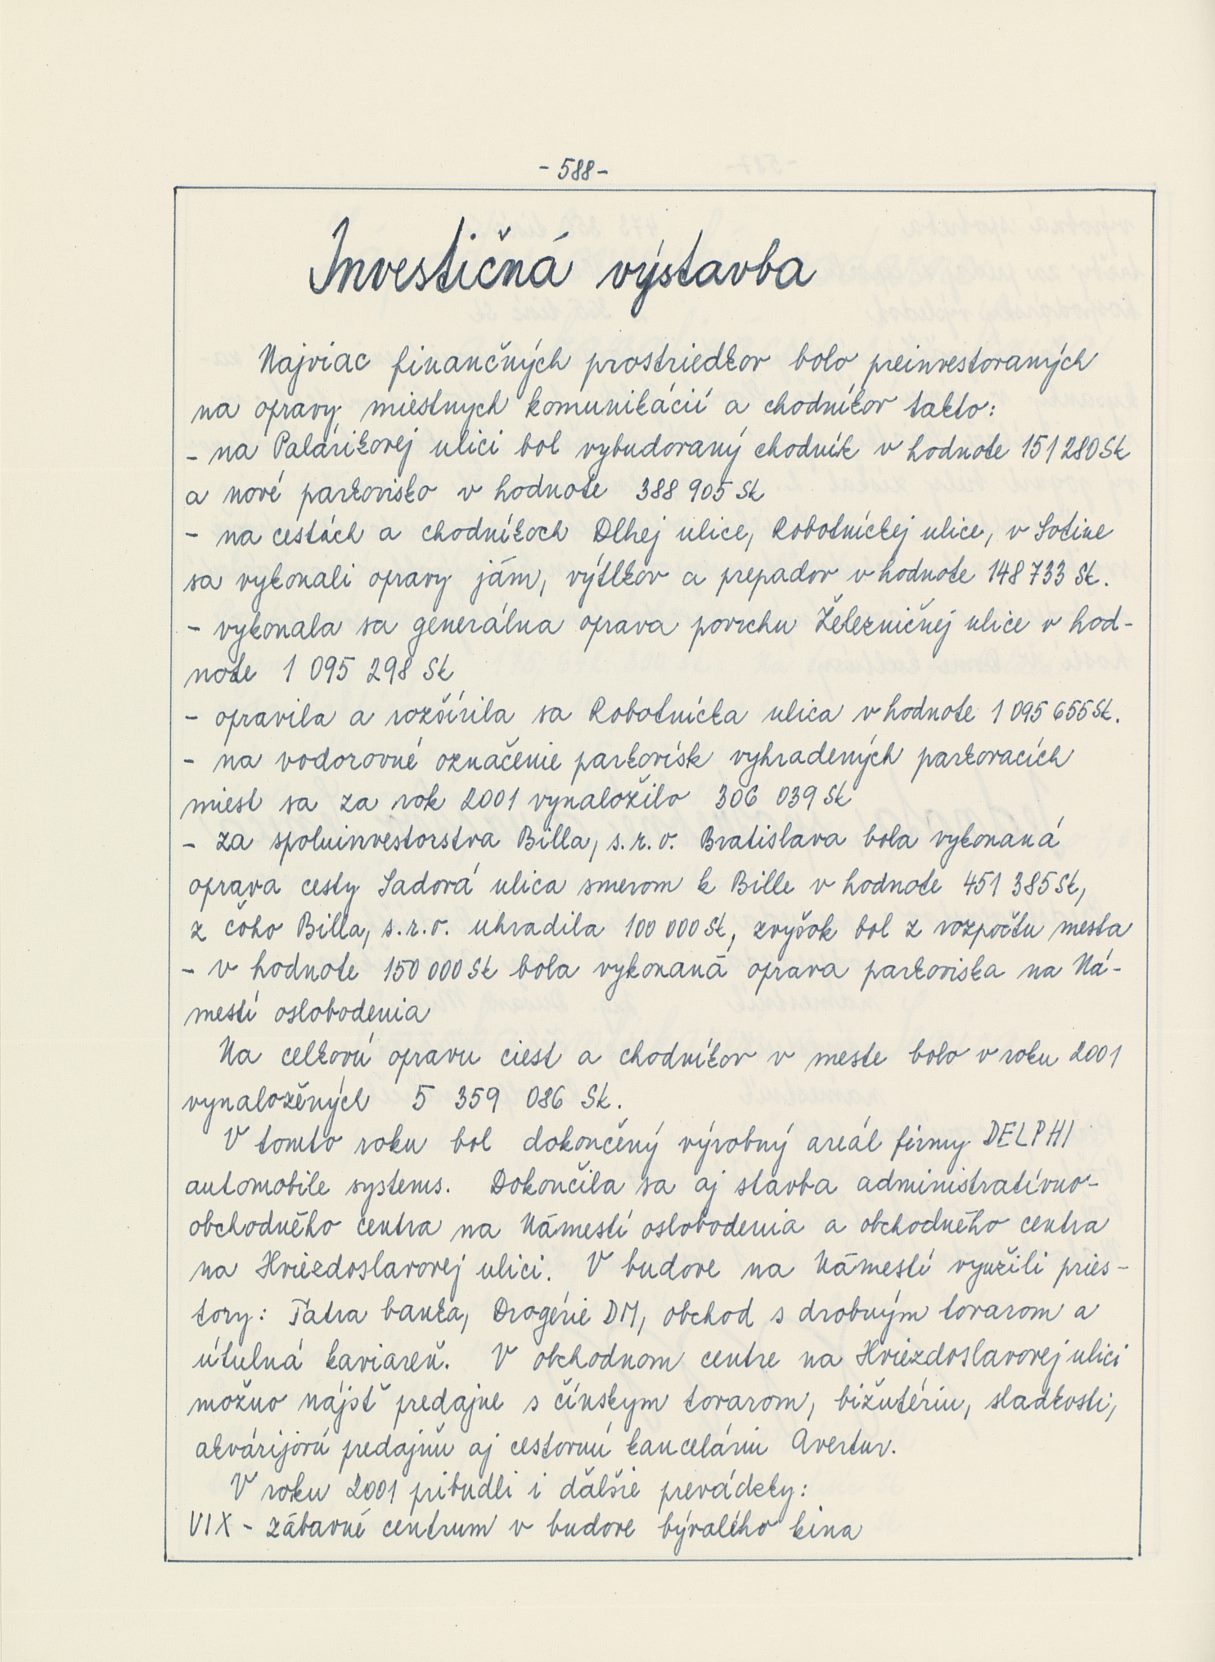 - 588 -
Investičná výstavba
Najviac finančných prostriedkov bolo preinvestovaných
na opravy miestnych komunikácií a chodníkov takto:
- na Palárikovej ulici bol vybudovaný chodník v hodnote 151 280 Sk
a nové parkovisko v hodnote 388 905 Sk
- na cestách a chodníkoch Dlhej ulice, Robotníckej ulice, v Sotine
sa vykonali opravy jám, výtlkov a prepadov v hodnote 148 733 Sk.
- vykonala sa generálna oprava povrchu Železničnej ulice v hod-
note 1 095 298 Sk
- opravila a rozšírila sa Robotnícka ulica v hodnote 1 095 655 Sk.
- na vodorovné označenie parkovísk vyhradených parkovacích
miest sa za rok 2001 vynaložilo 306 039 Sk
- za spoluinvestorstva Billa, s.r.o. Bratislava bola vykonaná
oprava cesty Sadová ulica smerom k Bille v hodnote 451 385 Sk,
z čoho Billa, s.r.o. uhradila 100 000 Sk, zvyšok bol z rozpočtu mesta
- v hodnote 150 000 Sk bola vykonaná oprava parkoviska na Ná-
mestí oslobodenia
Na celkovú opravu ciest a chodníkov v meste bolo v roku 2001
vynaložených 5 359 086 Sk.
V tomto roku bol dokončený výrobný areál firmy DELPHI
automobile systems. Dokončila sa aj stavba administratívno-
obchodného centra na Námestí oslobodenia a obchodného centra
na Hviezdoslavovej ulici. V budove na Námestí využili pries-
tory: Tatra banka, Drogérie DM, obchod s drobným tovarom a
útulná kaviareň. V obchodnom centre na Hviezdoslavovej ulici
možno nájsť predajne s čínskym tovarom, bižutériu, sladkosti,
akvárijovú predajňu aj cestovnú kanceláriu Avertur.
V roku 2001 pribudli i ďalšie prevádzky:
VIX - zábavné centrum v budove bývalého kina